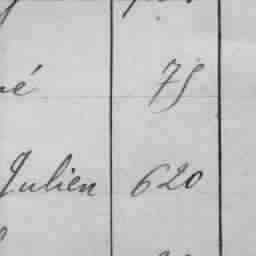 né 75
Julien 620